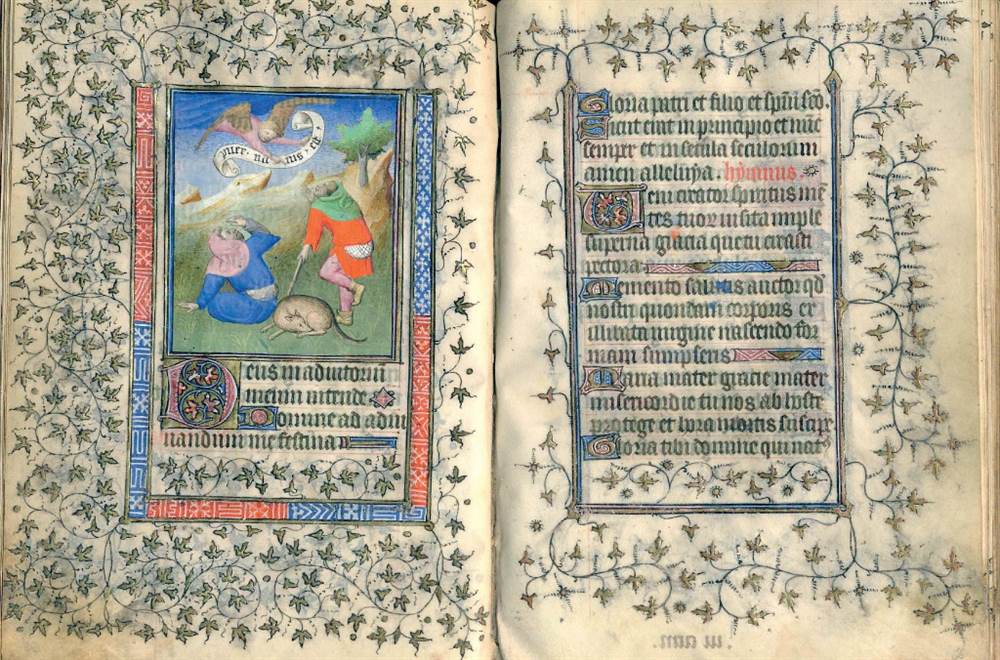 puer . na tus . est .
Deus in adiutoriū
meum intende
Domine ad adiu
uandum me festina
Gloria patri et filio et spūi sc̄o
Sicut erat in principio et nūc
semper et in secula seculorum
amen alleluya. hymnus.
Veni creator spiritus mē
tes tuor uisita imple
superna gracia que tu creasti
pectora.
Memento salutis auctor qd
nostri quondam corporis ex
illibata uirgine nascendo for
mam sumpseris
Maria mater gracie mater
misericordie tu nos ab hoste
protege et hora mortis suscipe
Gloria tibi domine qui natꝰ